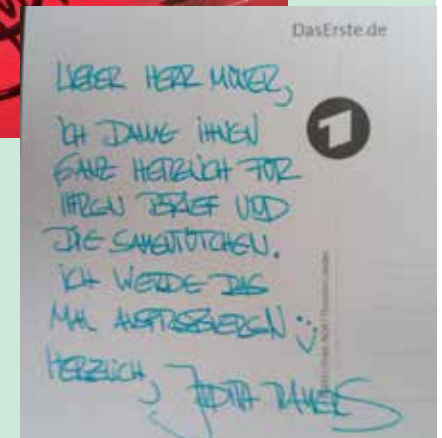 DasErste.de
LIEBER HERR MÜLLER,
ICH DANKE IHNEN
GANZ HERZLICH FÜR
IHREN BRIEF UND
DIE SAMENTÜTCHEN.
ICH WERDE DAS
MAL AUSPROBIEREN :)
HERZLICH,
JUDITH RAKERS
1